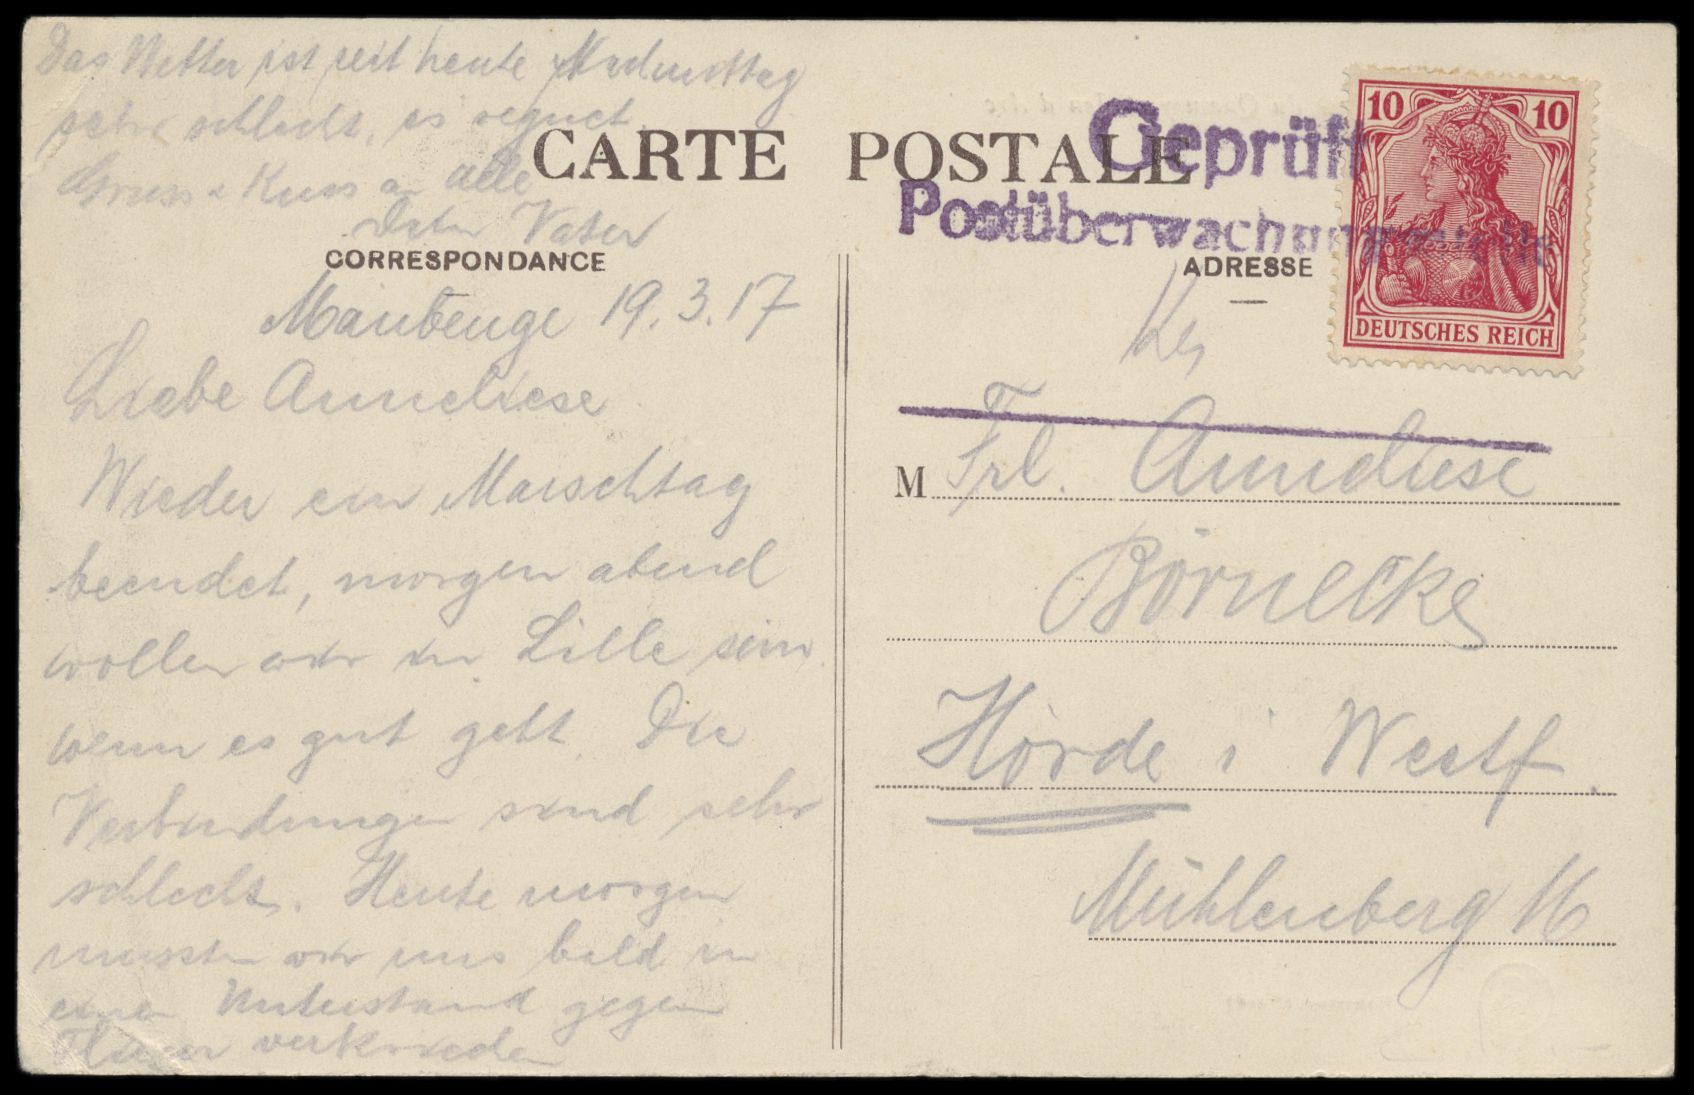 Das Wetter ist seit heute Nachmittag
sehr schlecht, es regnet.
Gruss u Kuss an alle
Dein Vater
CARTE POSTALE
CORRESPONDANCE
Maubeuge 19.3.17
Liebe Anneliese
Wieder ein Marschtag
beendet, morgen abend
wollen wir in Lille sein
wenn es gut geht. Die
Verbindungen sind sehr
schlecht. Heute morgen
mussten wir uns bald in
einen Unterstand gegen
Flieger verkriechen
Geprüft
Postüberwachungsstelle
ADRESSE
10 10
DEUTSCHES REICH
M Frl. Anneliese
Börnecke
Hörde i Westf.
Mühlenberg 16